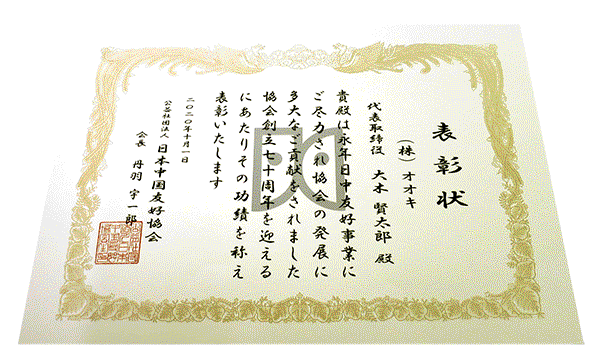 表彰状
(株)オオキ
代表取締役 大木 賢太郎 殿
貴殿は永年日中友好事業に
ご尽力され協会の発展に
多大なご貢献をされました
協会創立七十周年を迎える
にあたりその功績を称え
表彰いたします
二〇二〇年十月一日
公益社団法人 日本中国友好協会
会長 丹羽 宇一郎